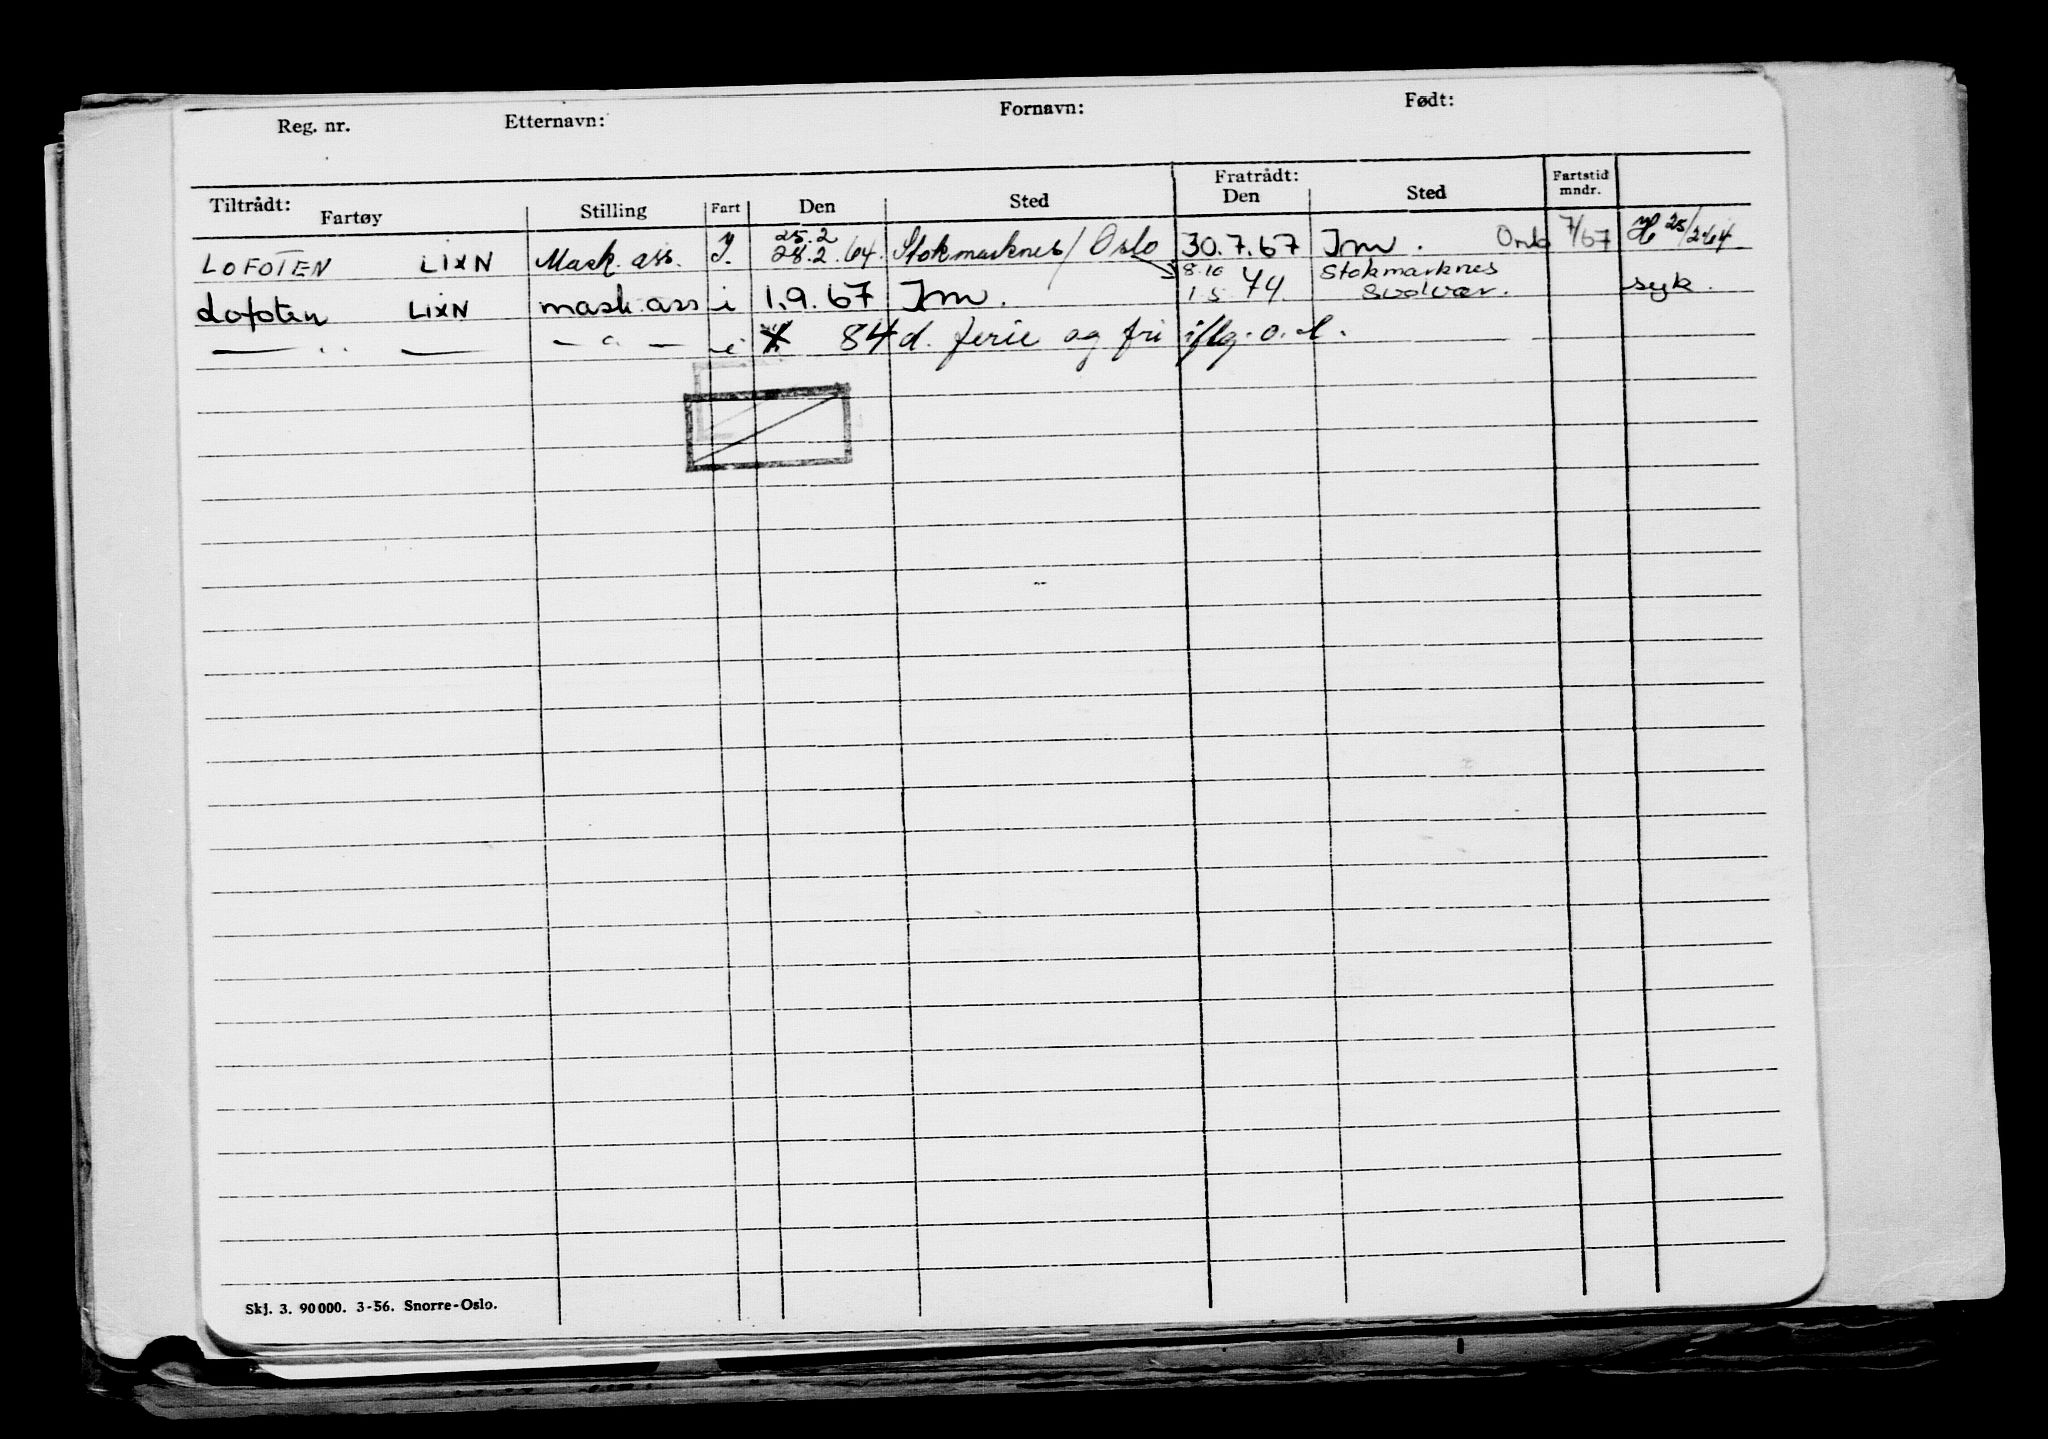 Reg. nr. Etternavn: Fornavn: Født:
Tiltrådt: Fratrådt:
Fartøy Stilling Fart Den Sted Den Sted Fartstid mndr.
25.2
LOFOTEN LIXN Mask. ass. 28.2.64. Stokmarknes/Oslo 30.7.67 Im. 7/67 25/2-64
8.10 Stokmarknes
Lofoten LIXN mask. ass i 1.9.67 Im. 1.5.74 Svolvær. syk.
— " — — " — i 84 d. ferie og fri iflg. o.l.
Skj. 3. 90 000. 3-56. Snorre-Oslo.